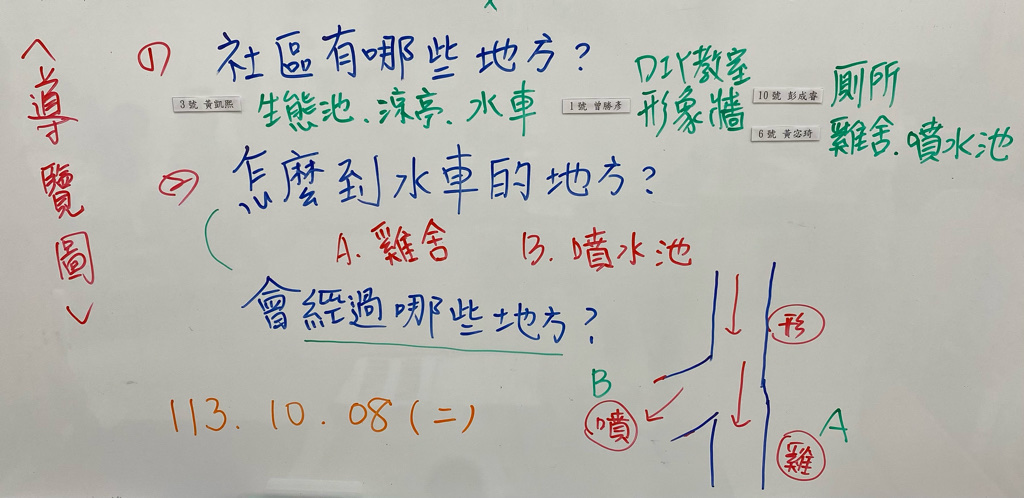 〈導覽圖〉
① 社區有哪些地方？
3號 黃凱熙 生態池、涼亭、水車
1號 曾勝彥 DIY教室
形象牆
10號 彭成睿 廁所
6號 黃宓琦 雞舍、噴水池
② 怎麼到水車的地方？
A. 雞舍 B. 噴水池
會經過哪些地方？
形
B
噴
A
雞
113.10.08(二)